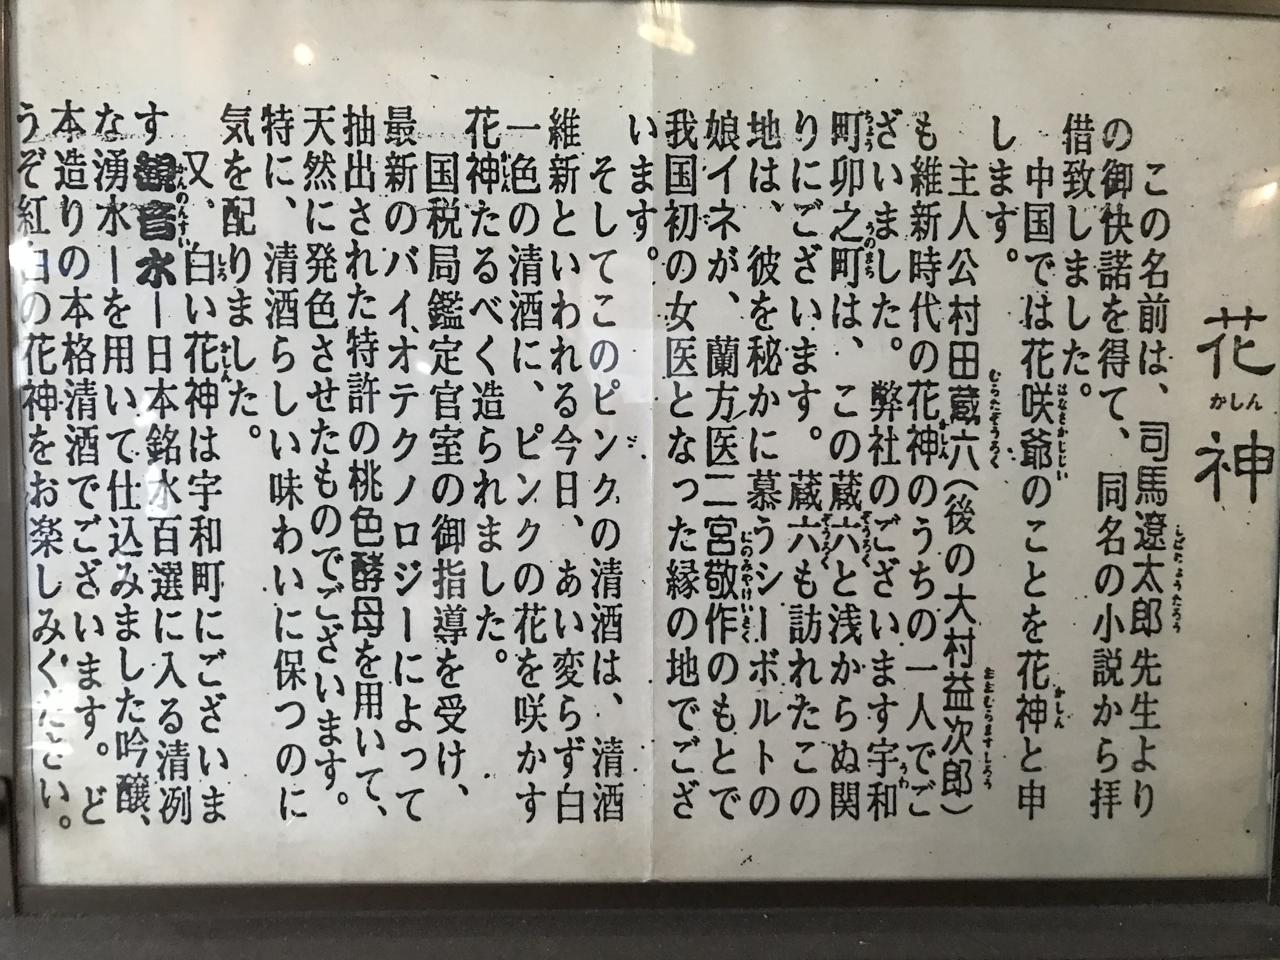 花神
かしん
この名前は、司馬遼太郎先生より
の御快諾を得て、同名の小説から拝
借致しました。
中国では花咲爺のことを花神と申
します。
主人公村田蔵六(後の大村益次郎)
も維新時代の花神のうちの一人でご
ざいました。弊社のございます宇和
町卯之町は、この蔵六と浅からぬ関
りにございます。蔵六も訪れたこの
地は、彼を秘かに慕うシーボルトの
娘イネが、蘭方医二宮敬作のもとで
我国初の女医となった縁の地でござ
います。
そしてこのピンクの清酒は、清酒
維新といわれる今日、あい変らず白
一色の清酒に、ピンクの花を咲かす
花神たるべく造られました。
国税局鑑定官室の御指導を受け、
最新のバイオテクノロジーによって
抽出された特許の桃色酵母を用いて、
天然に発色させたものでございます。
特に、清酒らしい味わいに保つのに
気を配りました。
又、白い花神は宇和町にございま
す観音水ー日本銘水百選に入る清冽
な湧水ーを用いて仕込みました吟醸、
本造りの本格清酒でございます。ど
うぞ紅白の花神をお楽しみください。